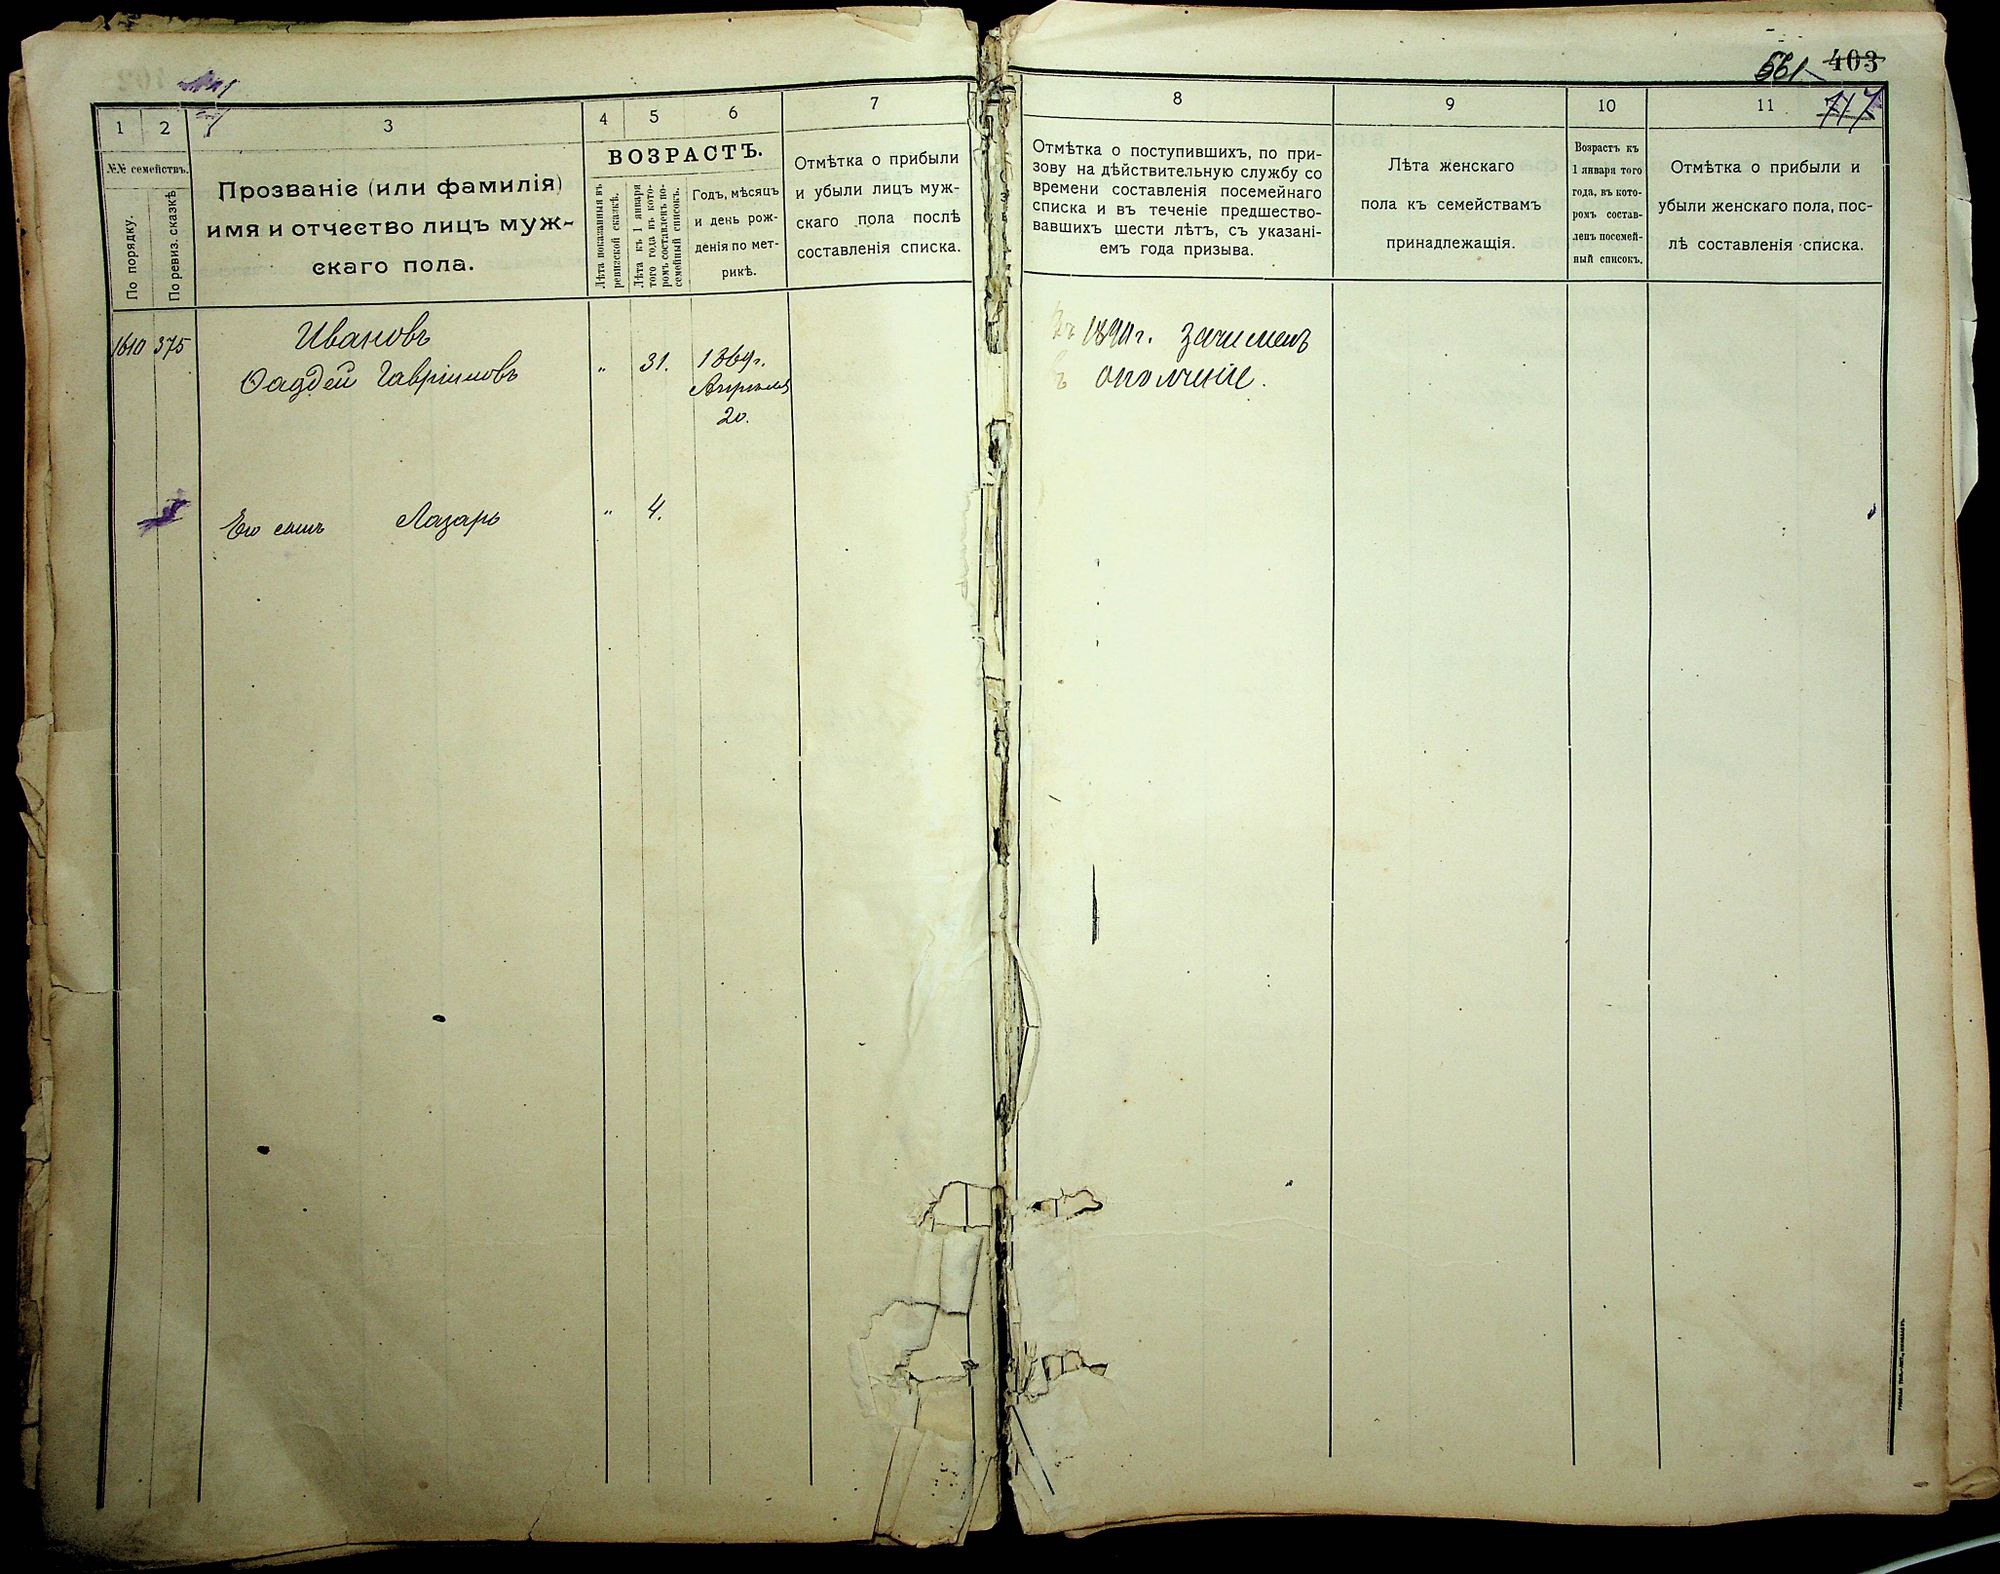 561 403
717
1 2 3 4 5 6 7
№№ семействъ.
По порядку.
По ревиз. сказкѣ
Прозваніе (или фамилія)
имя и отчество лицъ муж-
скаго пола.
ВОЗРАСТЪ.
Лѣта показанныя въ
ревизской сказкѣ.
Лѣта къ 1 января
того года въ кото-
ромъ составленъ по-
семейный списокъ.
Годъ, мѣсяцъ
и день рож-
денія по мет-
рикѣ.
Отмѣтка о прибыли
и убыли лицъ муж-
скаго пола послѣ
составленія списка.
1610 375 Ивановъ
Фаддей Гавриловъ " 31. 1869г.
Апрѣля
20.
Его сынъ Лазарь " 4.
8 9 10 11
Отмѣтка о поступившихъ, по при-
зову на дѣйствительную службу со
времени составленія посемейнаго
списка и въ теченіе предшество-
вавшихъ шести лѣтъ, съ указані-
емъ года призыва.
Лѣта женскаго
пола къ семействамъ
принадлежащія.
Возрастъ къ
1 января того
года, въ кото-
ромъ состав-
ленъ посемей-
ный списокъ.
Отмѣтка о прибыли и
убыли женскаго пола, пос-
лѣ составленія списка.
Въ 1890г. зачисленъ
в ополченіе.